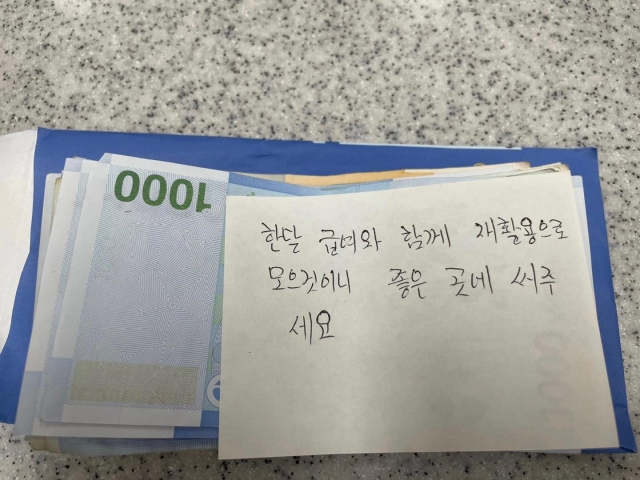 1000
한달 급여와 함께 재활용으로
모으것이니 좋은 곳에 써주
세요